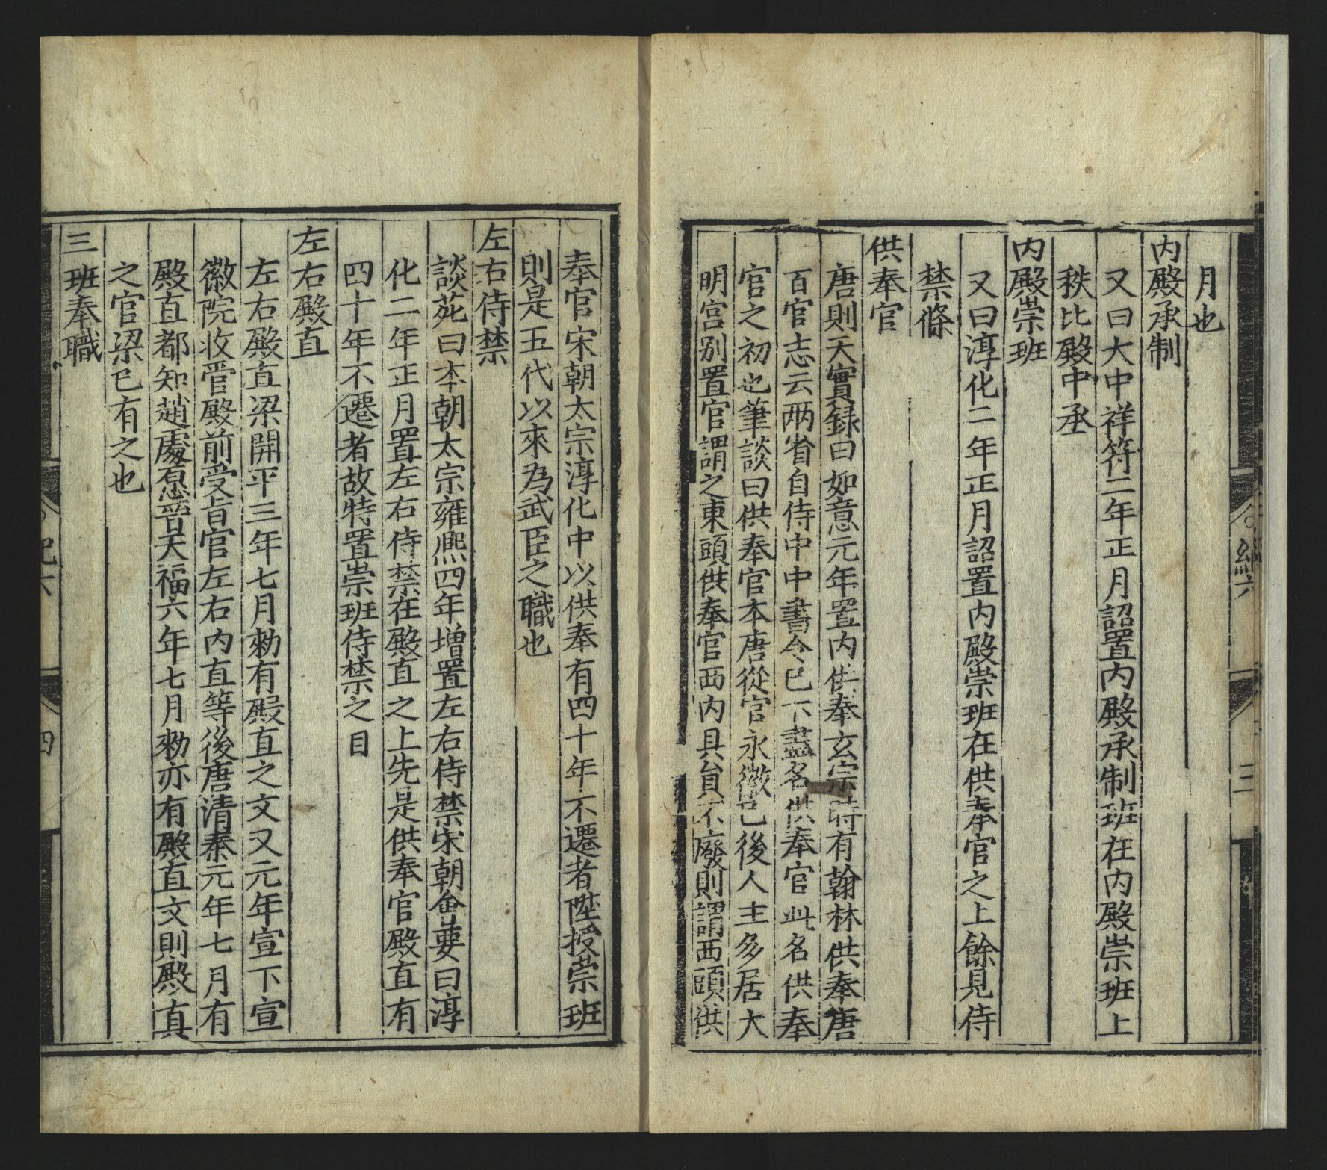 月也
内殿承制
又曰大中祥符二年正月詔置内殿承制班在内殿崇班上
秩比殿中丞
内殿崇班
又曰淳化二年正月詔置内殿崇班在供奉官之上餘見侍
禁條
供奉官
唐則天實録曰如意元年置内供奉玄宗時有翰林供奉唐
百官志云兩省自侍中中書令已下盡名供奉官此名供奉
官之初也筆談曰供奉官本唐從官永徽已後人主多居大
明宫别置官謂之東頭供奉官西内具員不廢則謂西頭供
奉官宋朝太宗淳化中以供奉有四十年不遷者陞授崇班
則是五代以來為武臣之職也
左右侍禁
談苑曰本朝太宗雍熙四年增置左右侍禁宋朝會要曰淳
化二年正月置左右侍禁在殿直之上先是供奉官殿直有
四十年不遷者故特置崇班侍禁之目
左右殿直
左右殿直梁開平三年七月勑有殿直之文又元年宣下宣
徽院收管殿前受旨官左右内直等後唐清泰元年七月有
殿直都知趙處愿晉天福六年七月勑亦有殿直文則殿直
之官梁已有之也
三班奉職
紀六
四